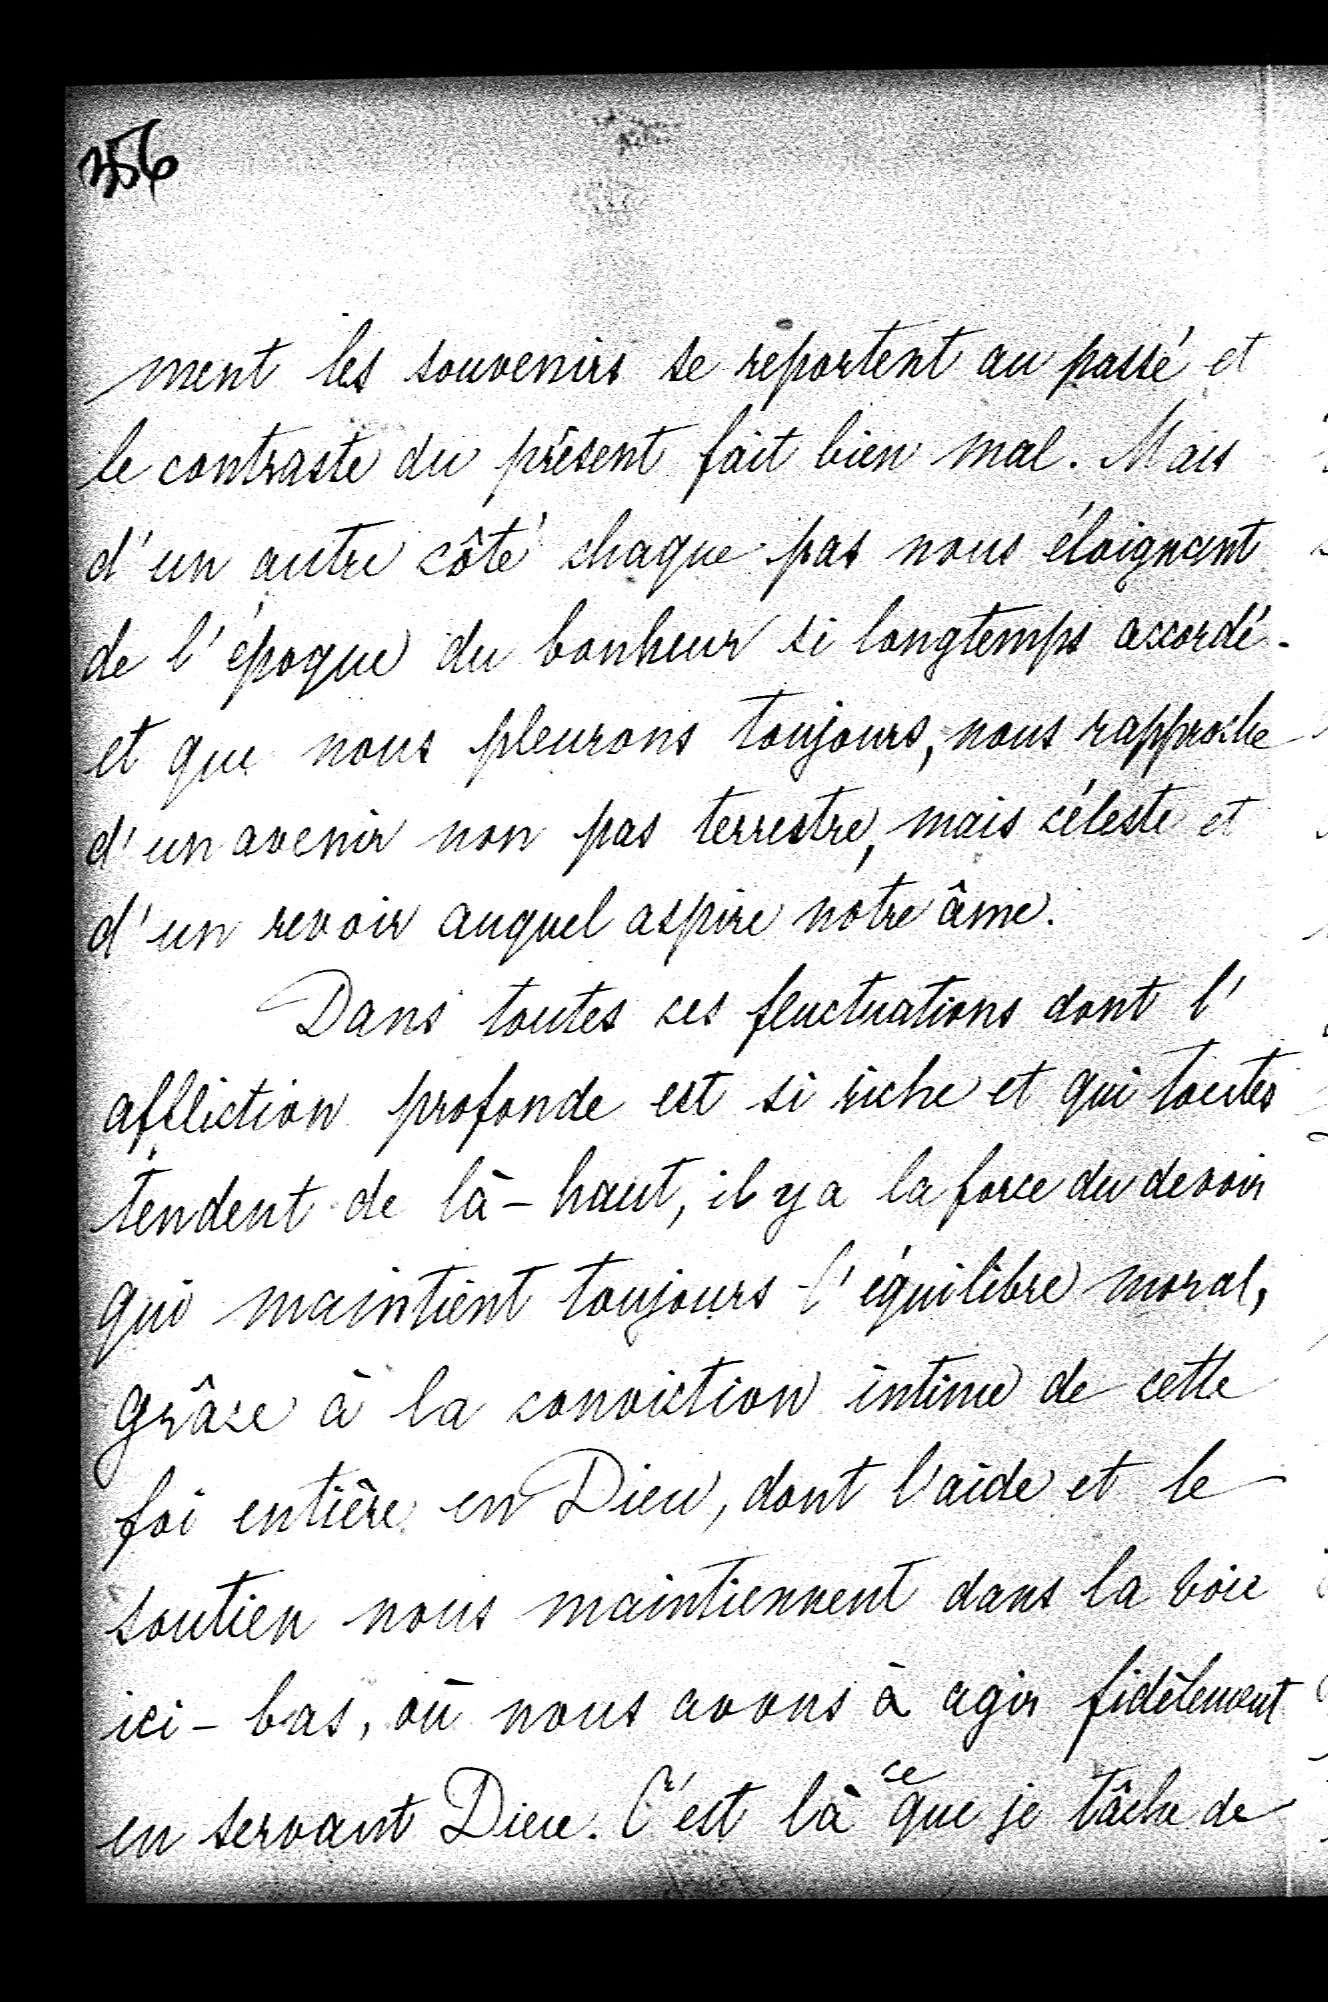 356
ment les souvenirs se reportent au passé et
le contraste du présent fait bien mal. Mais
d'un autre côté chaque pas nous éloignent
de l'époque du bonheur si longtemps accordé
et que nous pleurons toujours, nous rapproche
d'un avenir non pas terrestre, mais céleste et
d'un revoir auquel aspire nôtre âme.
Dans toutes ces fluctuations dont l'
affliction profonde est si riche et qui toutes
tendent de là-haut, il y a la force du devoir
qui maintient toujours l'équilibre moral,
grâce à la conviction intime de cette
foi entière en Dieu, dont l'aide et le
soutien nous maintiennent dans la voie
ici-bas, où nous avons à agir fidèlement
en servant Dieu. C'est là ce que je tâche de